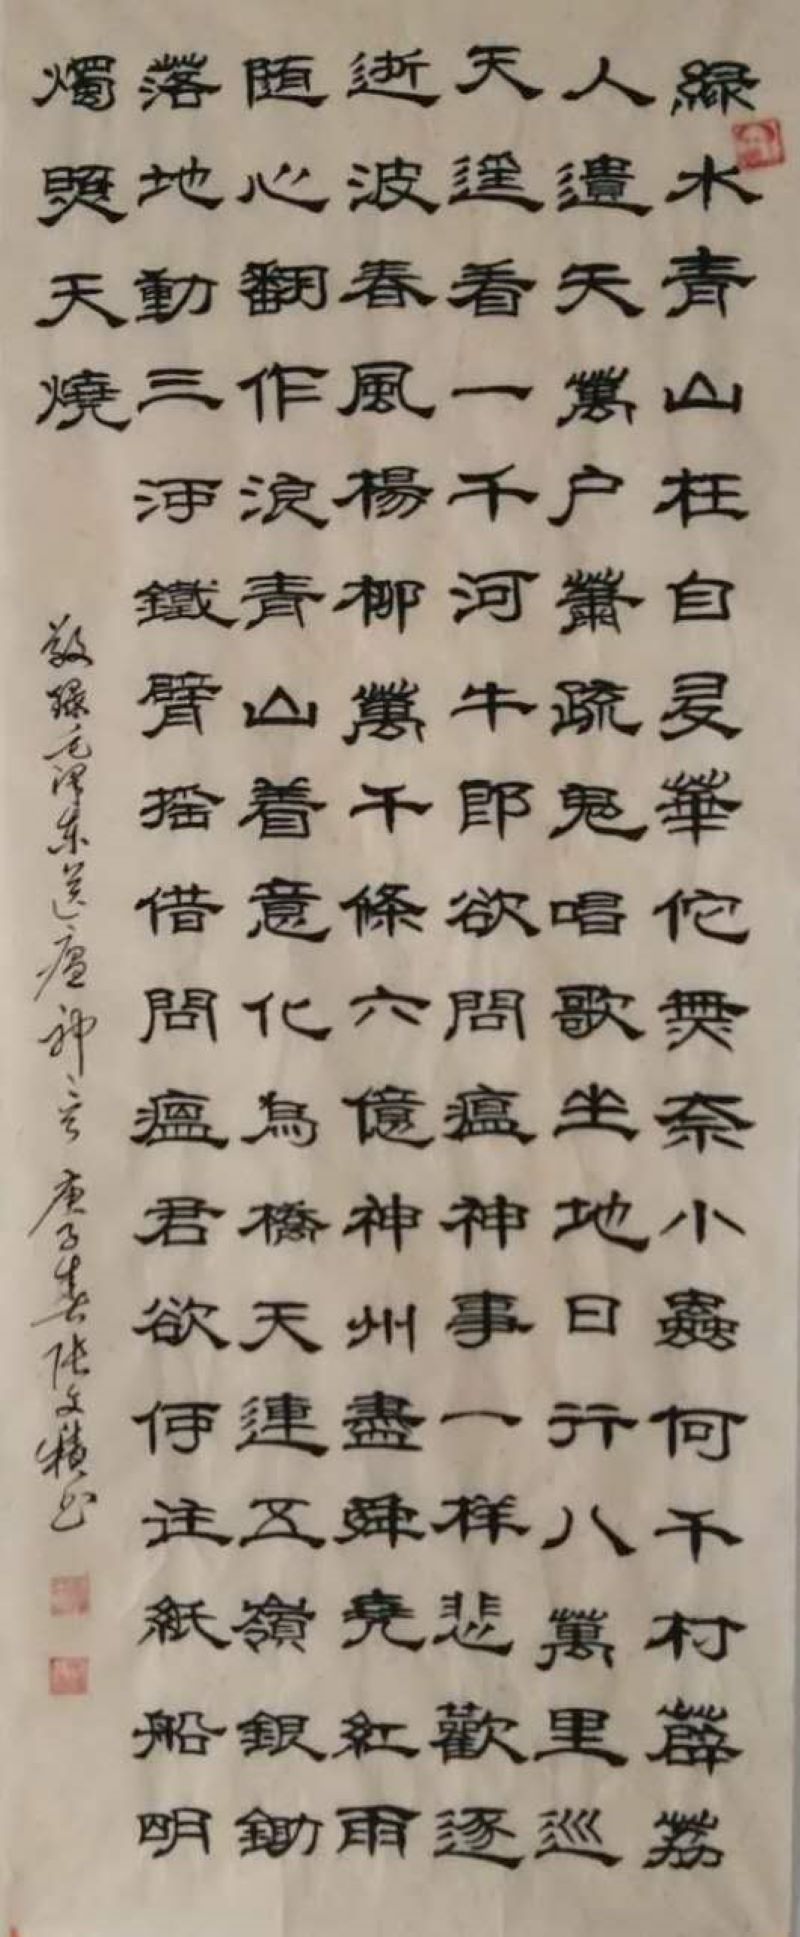 緑水青山枉自多華佗無奈小蟲何千村薜荔
人遺矢萬户蕭疏鬼唱歌坐地日行八萬里巡
天遥看一千河牛郎欲問瘟神事一样悲歡逐
逝波春風楊柳萬千條六億神州盡舜堯紅雨
随心翻作浪青山着意化為橋天連五嶺銀鋤
落地動三河鐵臂摇借問瘟君欲何往紙船明
燭照天燒
敬録毛泽东送瘟神二首 庚子春张文積书